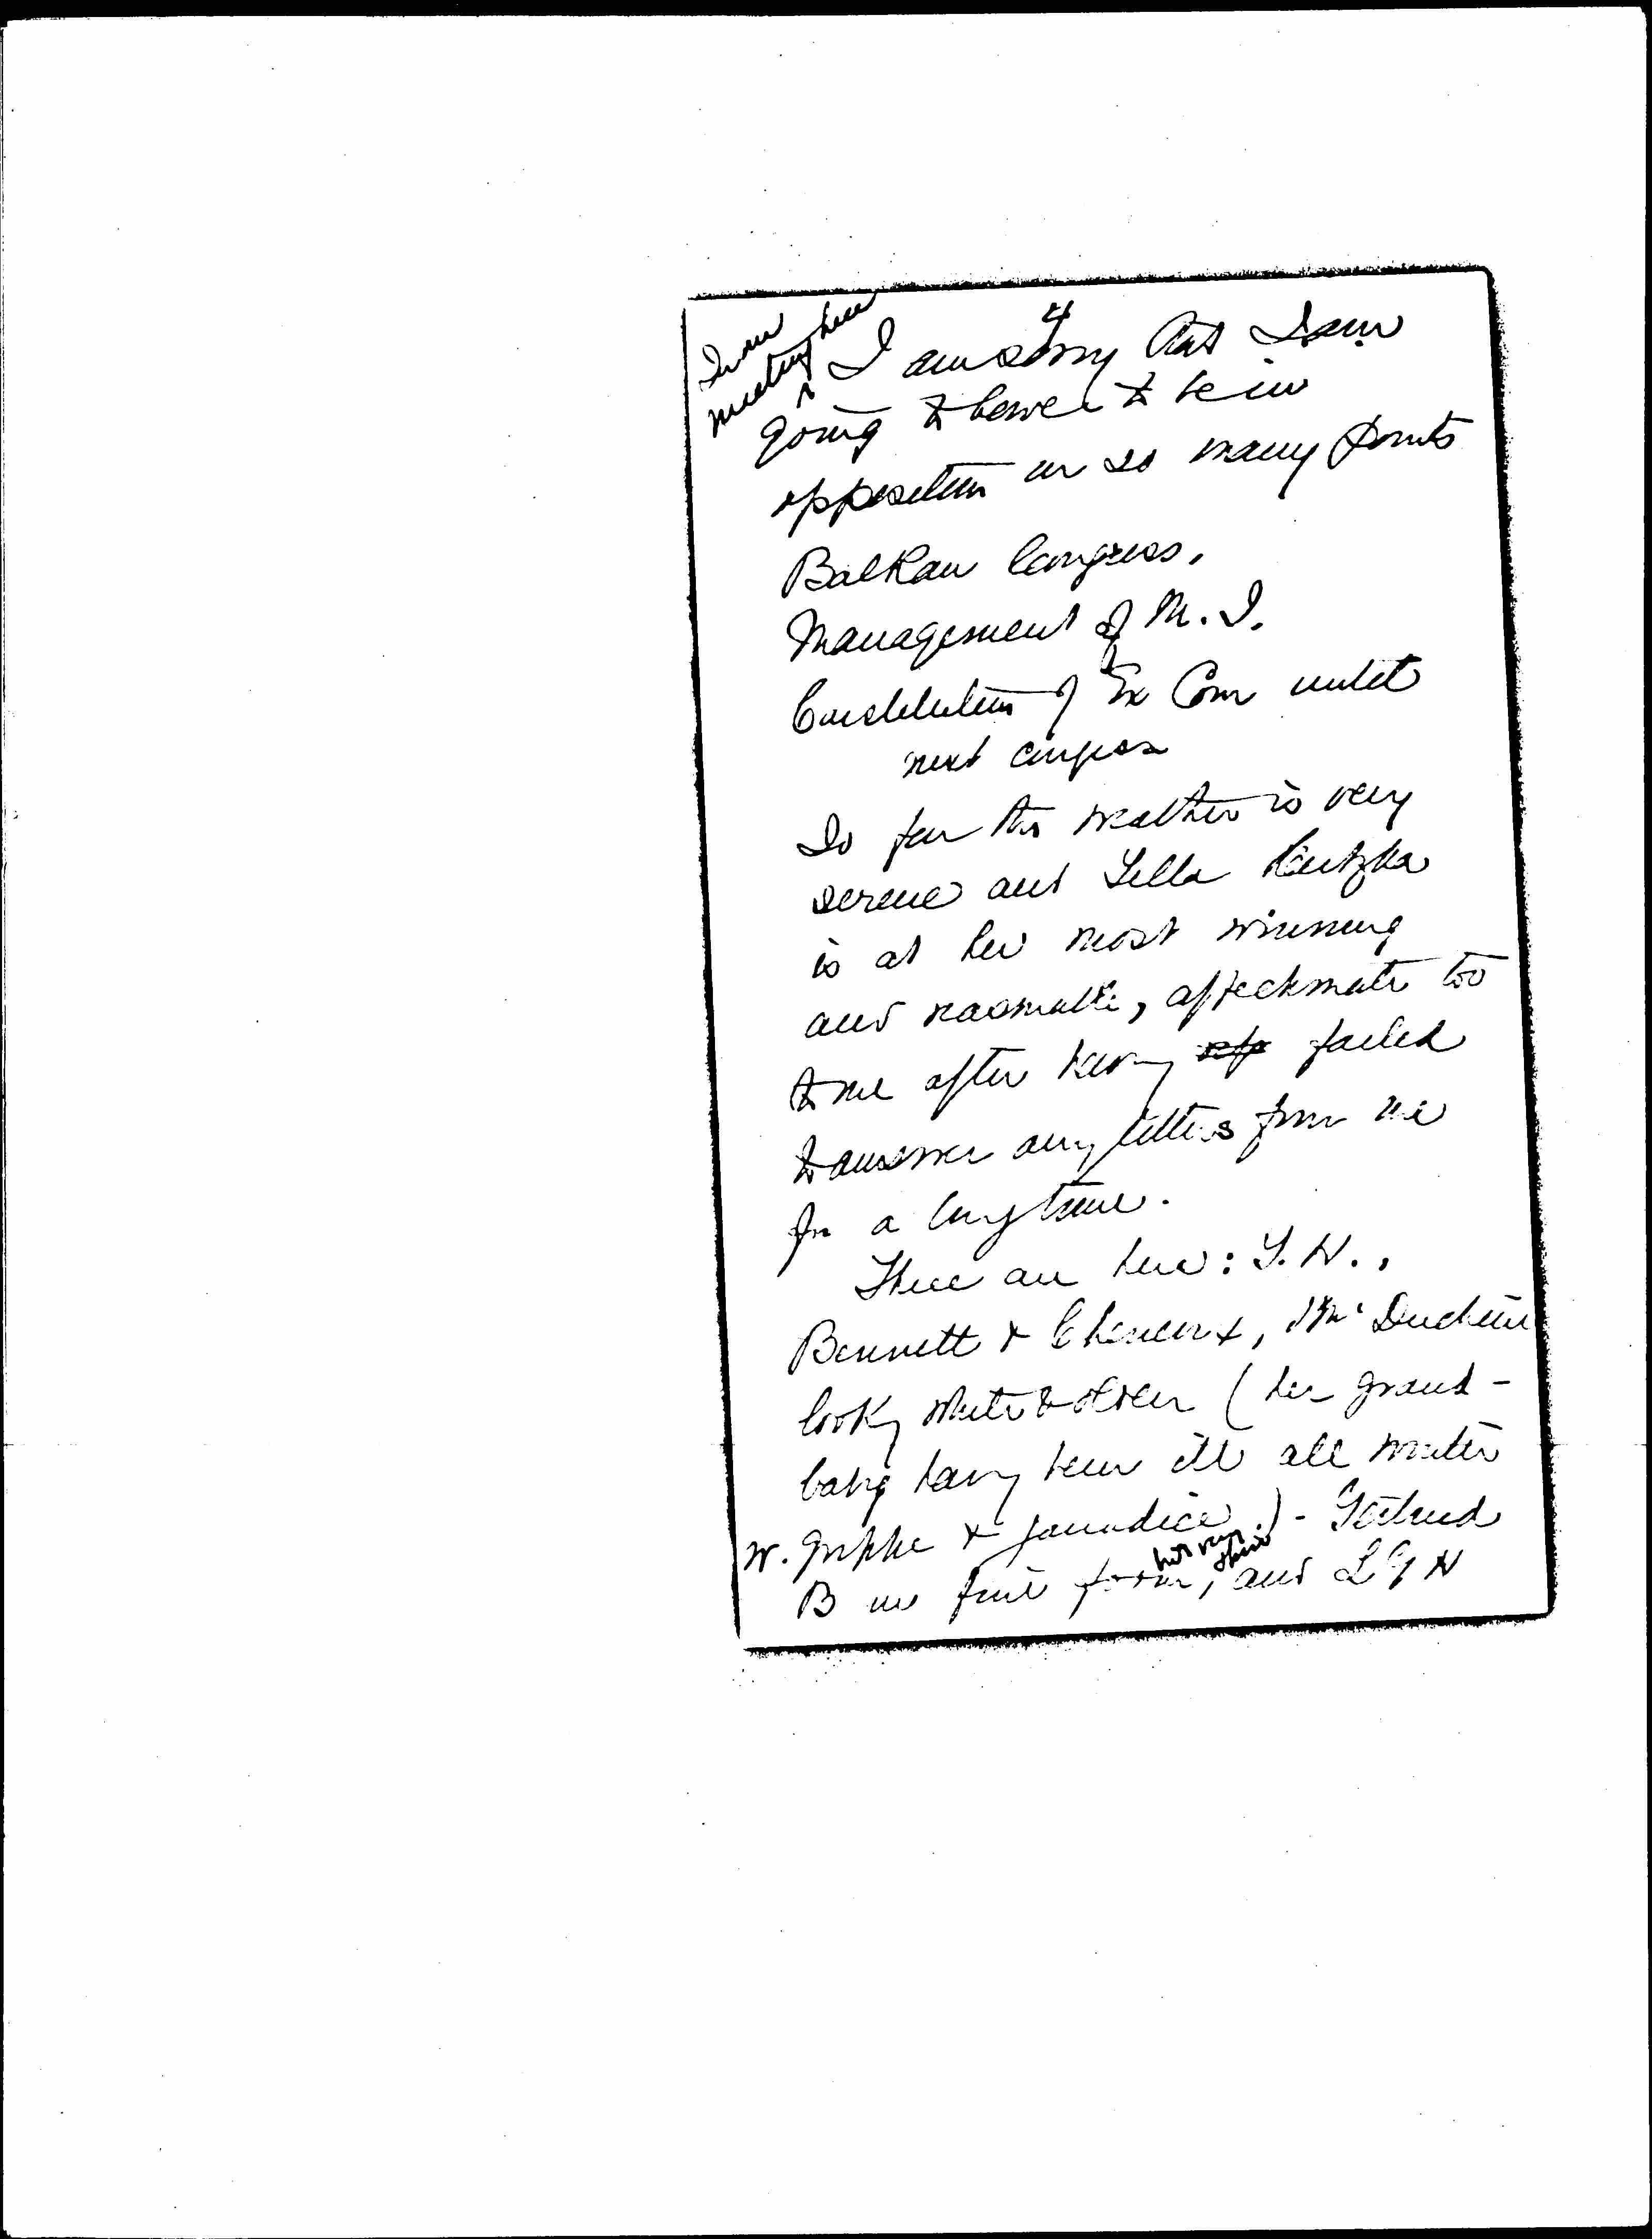 4
In our
meeting here
I am sorry that I am
going to have to be in
opposition on so many points
Balkan Congress.
Management of M. I.
Constitution of Ex Com until
next congress
So far the weather is very
serene and Yella Hertzka
is at her most winning
and reasonable, affectionate too
to me after having failed
to answer any letters from me
for a long time.
There are here: Y. H.,
Bennett & Chenevix, Mme Duchêne
looking white & older (her grand-
baby having been ill all winter
w. grippe & jaundice.) - Gertrud
B in fine form, not very
and L G H